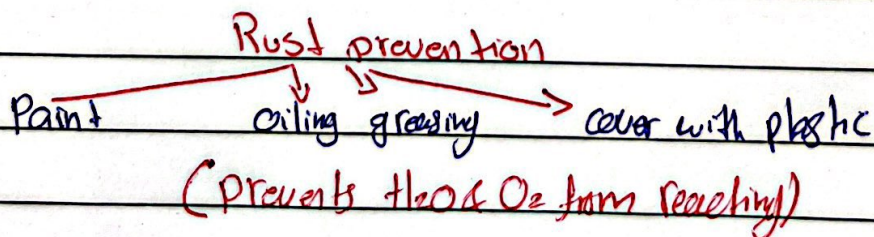 Rust prevention
Paint oiling greasing cover with plastic
(prevents H2O & O2 from reacting)